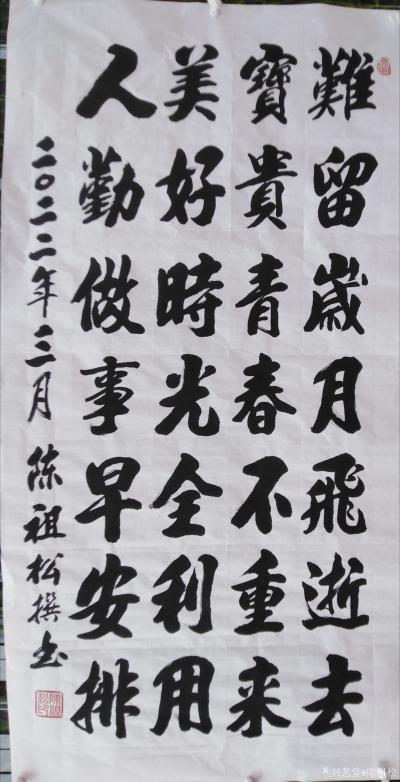 難留歲月飛逝去
寶貴青春不重來
美好時光全利用
人勤做事早安排
二〇二二年三月 陈祖松撰书
兴艺堂@陈祖松